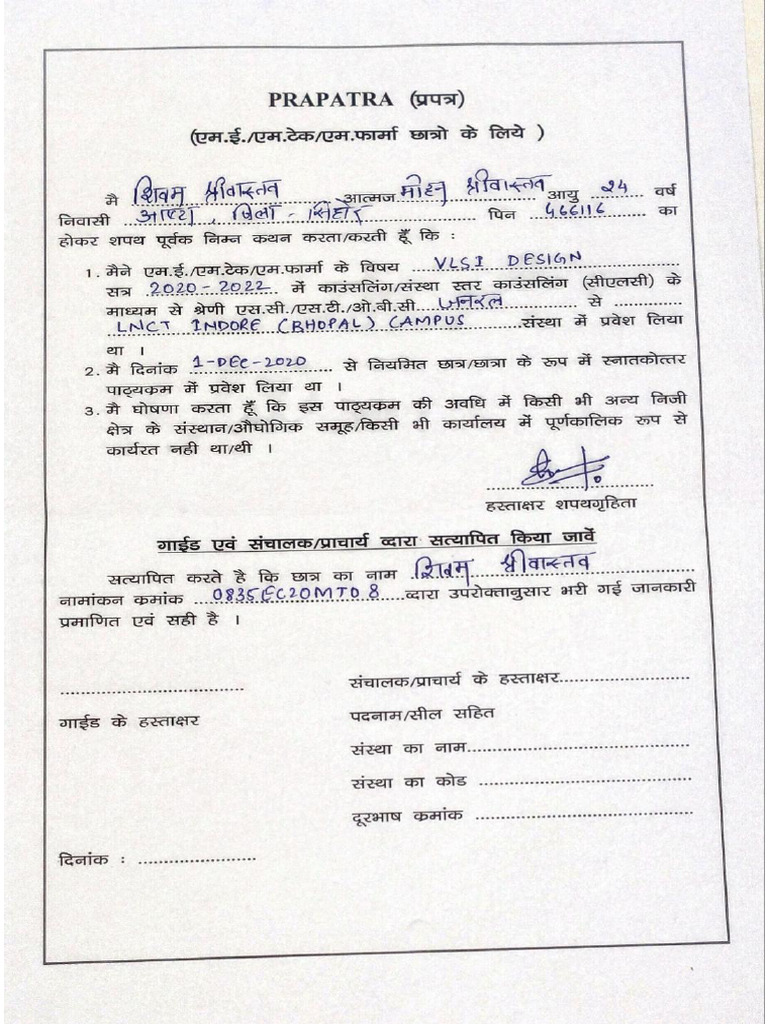 PRAPATRA (प्रपत्र)
(एम.ई./एम.टेक/एम.फार्मा छात्रो के लिये )
मै शिवम श्रीवास्तव आत्मज मोहन श्रीवास्तव आयु 24 वर्ष
निवासी आष्टा , जिला - सिहोर पिन 466116 का
होकर शपथ पूर्वक निम्न कथन करता/करती हूँ कि :
1. मैने एम.ई./एम.टेक/एम.फार्मा के विषय VLSI DESIGN
सत्र 2020-2022 में काउंसलिंग/संस्था स्तर काउंसलिंग (सीएलसी) के
माध्यम से श्रेणी एस.सी./एस.टी./ओ.बी.सी. जनरल से
LNCT INDORE (BHOPAL) CAMPUS संस्था में प्रवेश लिया
था ।
2. मै दिनांक 1-DEC-2020 से नियमित छात्र/छात्रा के रूप में स्नातकोत्तर
पाठ्यकम में प्रवेश लिया था ।
3. मै घोषणा करता हूँ कि इस पाठ्यकम की अवधि में किसी भी अन्य निजी
क्षेत्र के संस्थान/औघोगिक समूह/किसी भी कार्यालय में पूर्णकालिक रूप से
कार्यरत नही था/थी ।
हस्ताक्षर शपथगृहिता
गाईड एवं संचालक/प्राचार्य व्दारा सत्यापित किया जावें
सत्यापित करते है कि छात्र का नाम शिवम श्रीवास्तव
नामांकन कमांक 0835EC20MT08 व्दारा उपरोक्तानुसार भरी गई जानकारी
प्रमाणित एवं सही है ।
संचालक/प्राचार्य के हस्ताक्षर
गाईड के हस्ताक्षर पदनाम/सील सहित
संस्था का नाम
संस्था का कोड
दूरभाष कमांक
दिनांक :